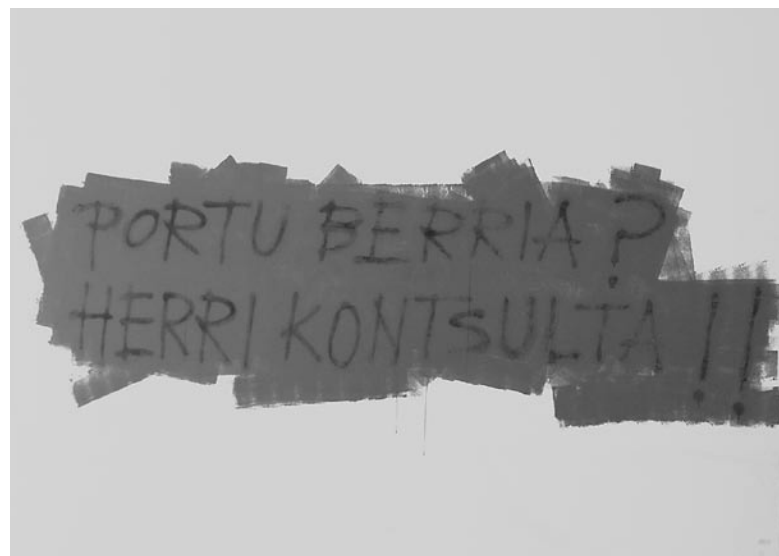 PORTU BERRIA?
HERRI KONTSULTA!!